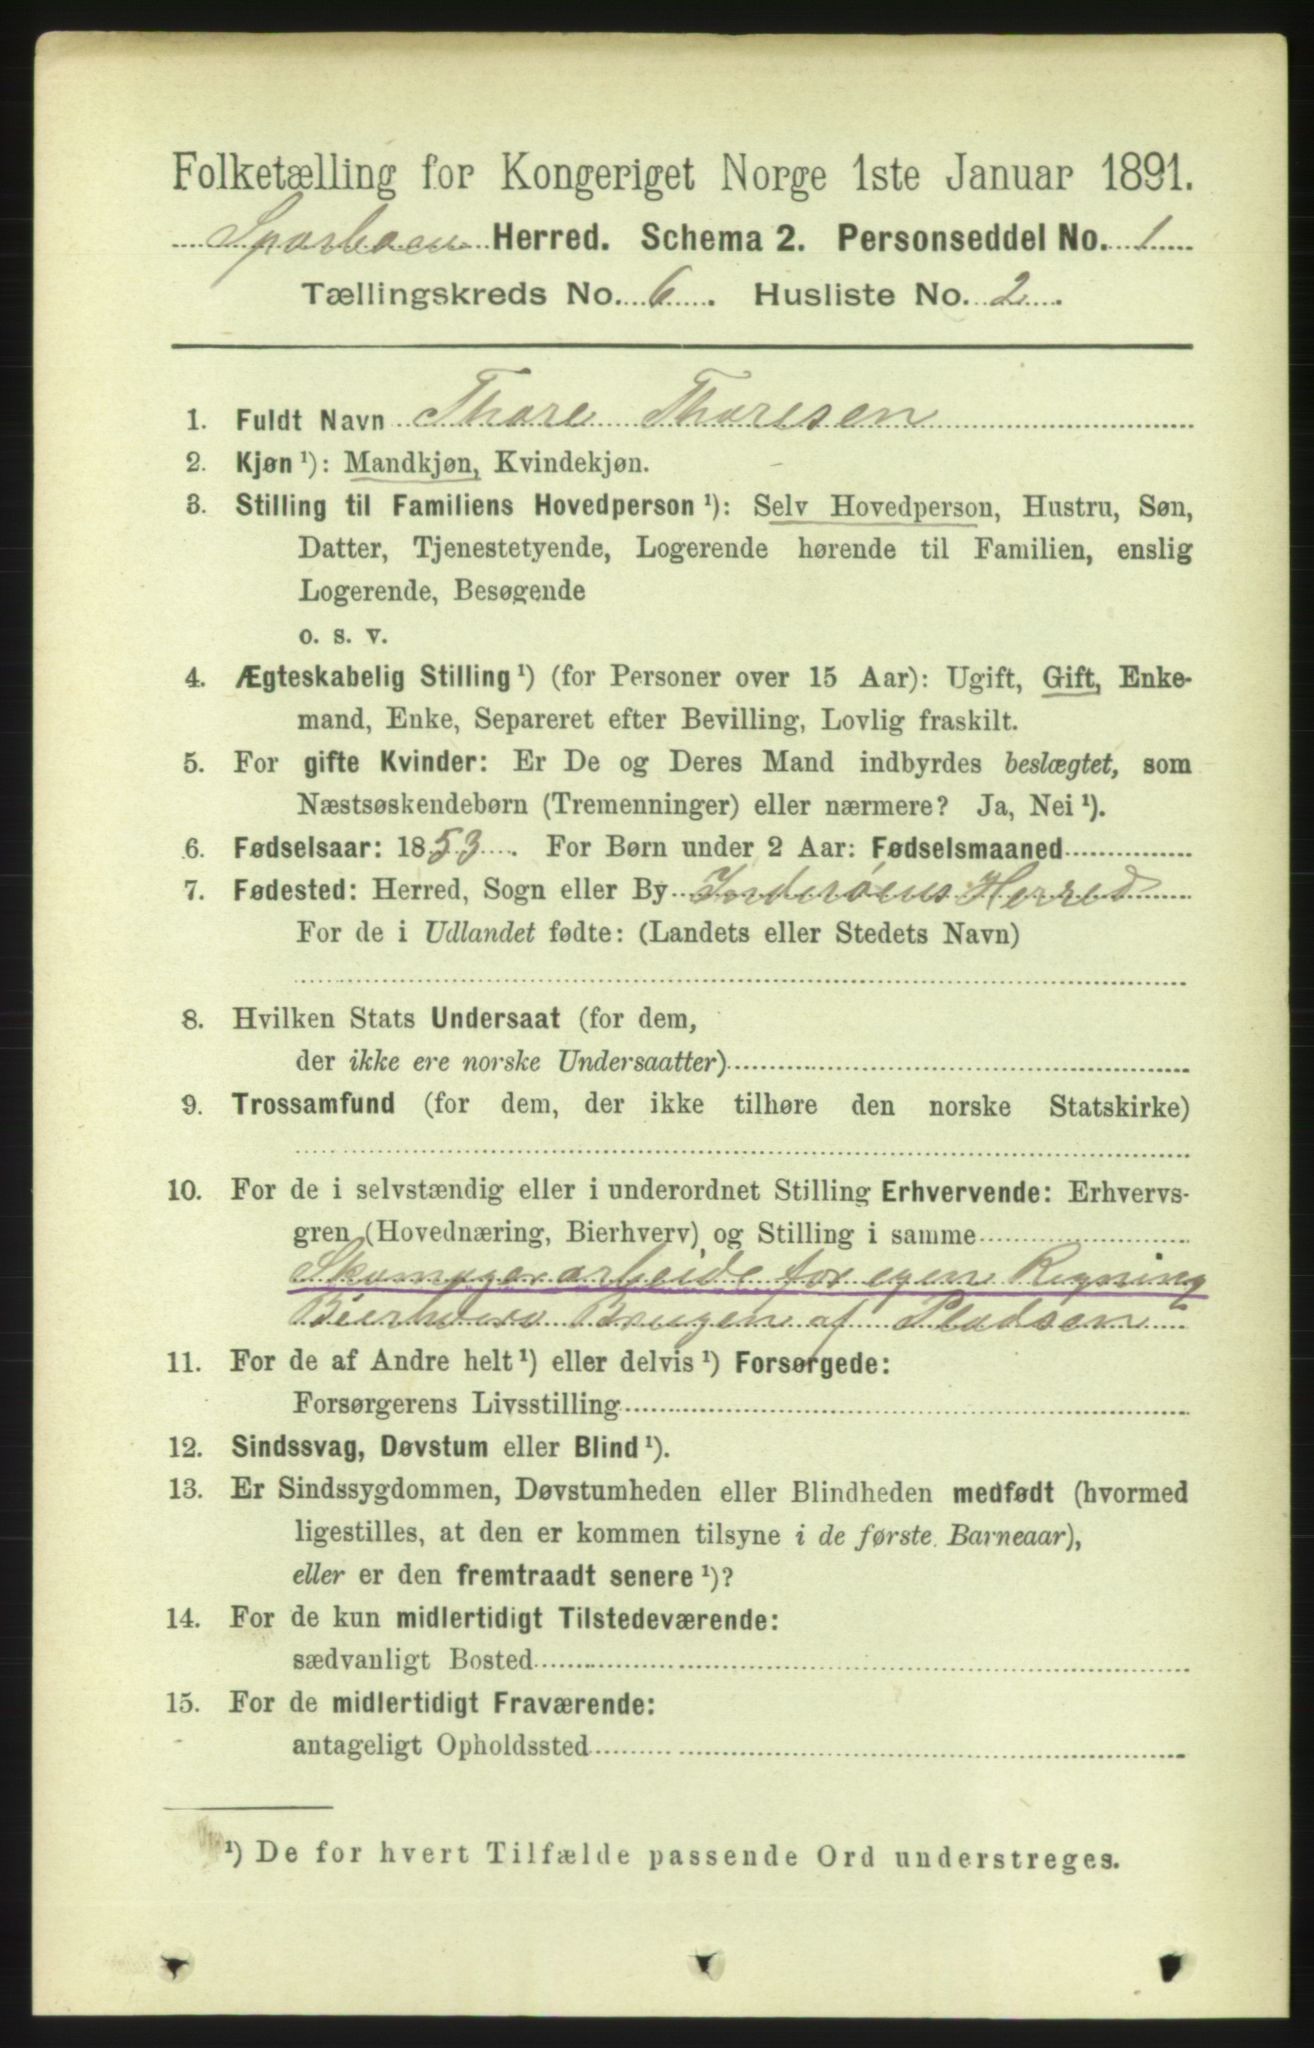 Folketælling for Kongeriget Norge 1ste Januar 1891.
Sparbuen Herred. Schema 2. Personseddel No. 1
Tællingskreds No. 6. Husliste No. 2.
1. Fuldt Navn Thore Thoresen
2. Kjøn ¹): Mandkjøn, Kvindekjøn.
3. Stilling til Familiens Hovedperson ¹): Selv Hovedperson, Hustru, Søn,
Datter, Tjenestetyende, Logerende hørende til Familien, enslig
Logerende, Besøgende
o. s. v.
4. Ægteskabelig Stilling ¹) (for Personer over 15 Aar): Ugift, Gift, Enke-
mand, Enke, Separeret efter Bevilling, Lovlig fraskilt.
5. For gifte Kvinder: Er De og Deres Mand indbyrdes beslægtet, som
Næstsøskendebørn (Tremenninger) eller nærmere? Ja, Nei ¹).
6. Fødselsaar: 1853. For Børn under 2 Aar: Fødselsmaaned
7. Fødested: Herred, Sogn eller By Inderøens Herred
For de i Udlandet fødte: (Landets eller Stedets Navn)
8. Hvilken Stats Undersaat (for dem,
der ikke ere norske Undersaatter)
9. Trossamfund (for dem, der ikke tilhøre den norske Statskirke)
10. For de i selvstændig eller i underordnet Stilling Erhvervende: Erhvervs-
gren (Hovednæring, Bierhverv) og Stilling i samme
Skomagerarbeide for egen Regning
Bierhverv Brugen af Pladsen
11. For de af Andre helt ¹) eller delvis ¹) Forsørgede:
Forsørgerens Livsstilling
12. Sindssvag, Døvstum eller Blind ¹).
13. Er Sindssygdommen, Døvstumheden eller Blindheden medfødt (hvormed
ligestilles, at den er kommen tilsyne i de første Barneaar),
eller er den fremtraadt senere ¹)?
14. For de kun midlertidigt Tilstedeværende:
sædvanligt Bosted
15. For de midlertidigt Fraværende:
antageligt Opholdssted
¹) De for hvert Tilfælde passende Ord understreges.